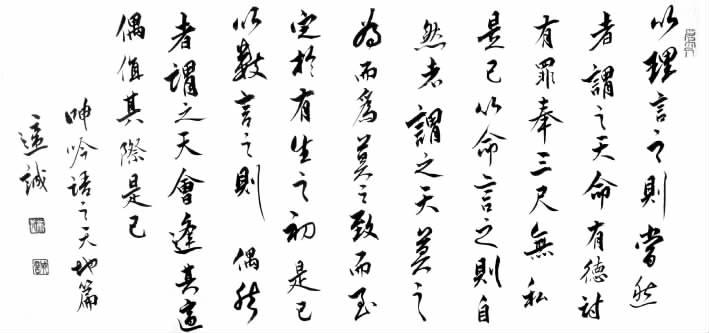 以理言之則當然
者謂之天命有德討
有罪奉三尺無私
是已以命言之則自
然者謂之天莫之
為而爲莫之致而至
定於有生之初是已
以數言之則偶然
者謂之天會逢其適
偶值其際是已
呻吟語之天地篇
誠